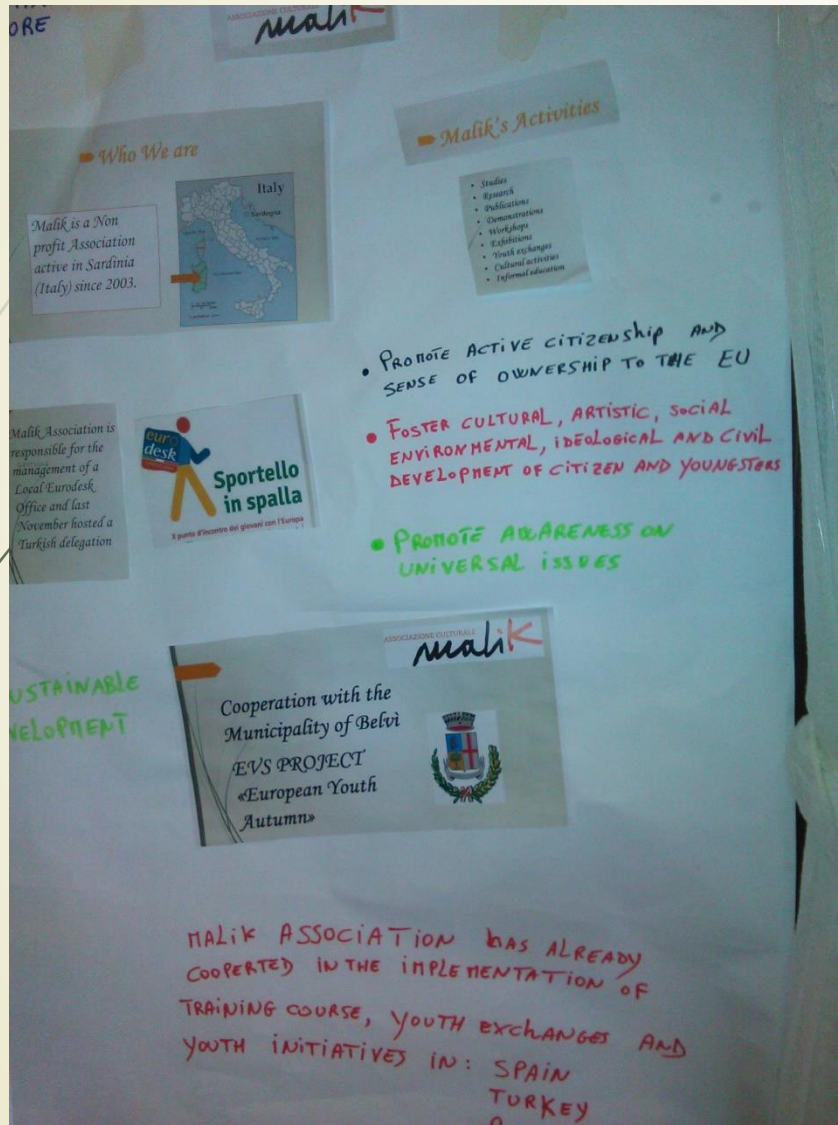 ORE
ASSOCIAZIONE CULTURALE
maliK
Who We are
Malik is a Non
profit Association
active in Sardinia
(Italy) since 2003.
Italy
Sardegna
Malik's Activities
• Studies
• Research
• Publications
• Demonstrations
• Workshops
• Exhibitions
• Youth exchanges
• Cultural activities
• Informal education
• PROMOTE ACTIVE CITIZENSHIP AND
SENSE OF OWNERSHIP TO THE EU
• FOSTER CULTURAL, ARTISTIC, SOCIAL
ENVIRONMENTAL, IDEOLOGICAL AND CIVIL
DEVELOPMENT OF CITIZEN AND YOUNGSTERS
• PROMOTE AWARENESS ON
UNIVERSAL ISSUES
Malik Association is
responsible for the
management of a
Local Eurodesk
Office and last
November hosted a
Turkish delegation
euro
desk
Sportello
in spalla
Il punto d'incontro dei giovani con l'Europa
USTAINABLE
VELOPMENT
ASSOCIAZIONE CULTURALE
maliK
Cooperation with the
Municipality of Belvì
EVS PROJECT
«European Youth
Autumn»
MALIK ASSOCIATION HAS ALREADY
COOPERTED IN THE IMPLEMENTATION OF
TRAINING COURSE, YOUTH EXCHANGES AND
YOUTH INITIATIVES IN: SPAIN
TURKEY